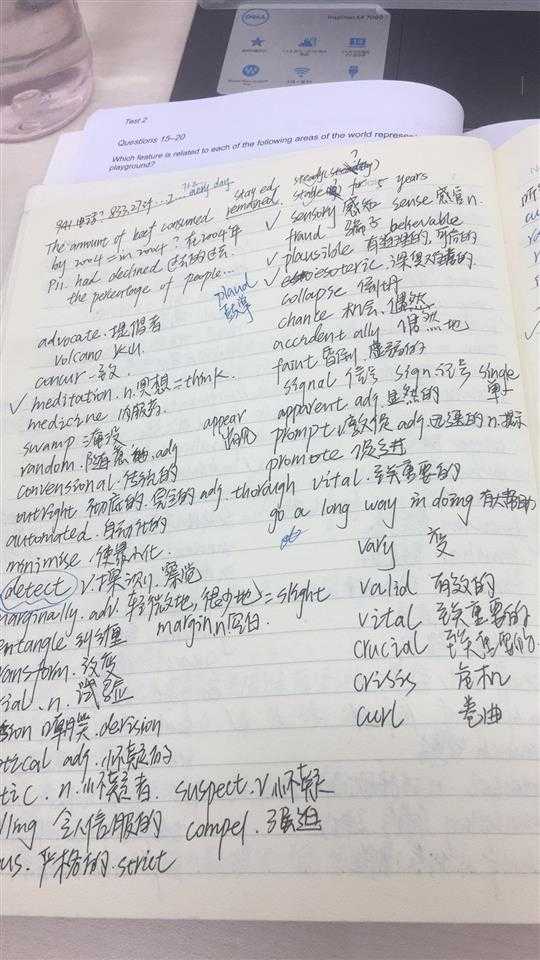 DELL
Inspiron 14 7000
Test 2
Questions 15–20
Which feature is related to each of the following areas of the world represen
playground?
every day
The amount of beef consumed stayed steady
remained stable for 5 years
by 2004 = in 2004? 在2004年
P11. had declined
the percentage of people...
✓ sensory 感知 sense 感官 n.
fraud 骗子 believable
✓ plausible 有道理的, 可信的
plaud
✓ esoteric. 深奥难懂的
collapse 倒塌
chance 机会, 偶然
accident ally 偶然地
faint 昏倒, 虚弱的
signal 信号 sign. 记号 single 单
appear
出现
apparent adj 显然的
prompt v. 敦促 adj. 迅速的 n. 提示
promote 促进
vital. 至关重要的
go a long way in doing 有大帮助
advocate. 提倡者
volcano 火山
concur 一致
✓ meditation. n. 冥想 = think.
medicine 内服药
swamp 淹没
random. 随意 adj
convensional. 传统的
outright 彻底的. 完全的 adj. thorough
automated. 自动化的
minimise. 使最小化.
detect v. 探测. 察觉
marginally. adv. 轻微地, 很少地 = slight
margin n. 空白.
entangle 纠缠
ransform. 改变
ial. n. 试验
sion 嘲笑. derision
tical adj. 怀疑的
tic. n. 怀疑者. suspect. v 怀疑
lling 令人信服的 compel. 强迫
us. 严格的. strict
vary 变
valid 有效的
vital 至关重要的
crucial 至关重要的.
crisis 危机
curl 卷曲